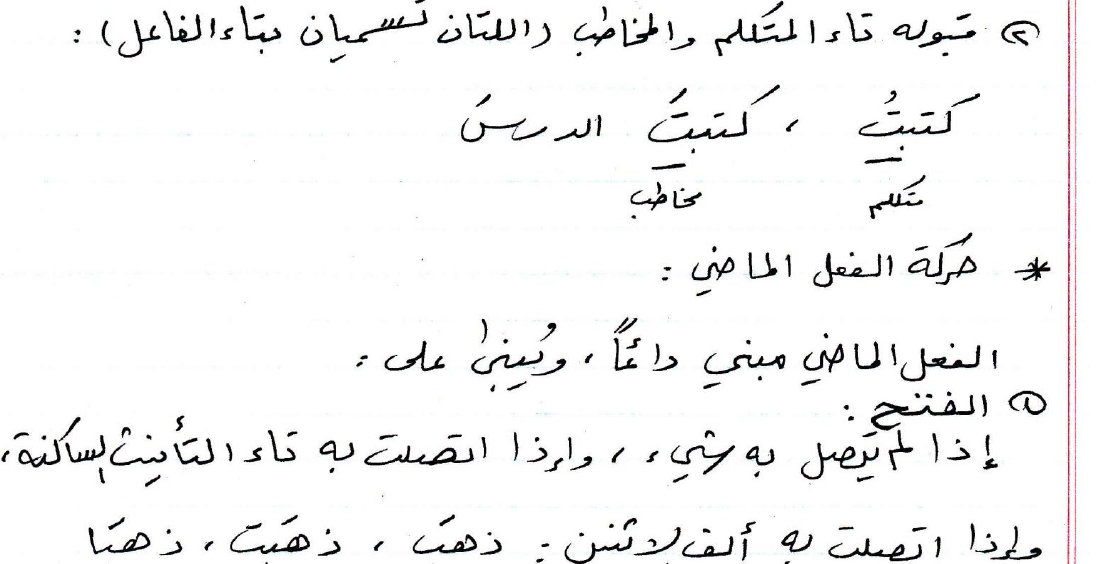 ② قبوله تاء المتكلم والمخاطب (اللتان تسميان بتاء الفاعل) :
كتبتُ ، كتبتَ الدرسَ
متكلم مخاطب
* حركة الفعل الماضي :
الفعل الماضي مبني دائماً ، ويُبنى على :
① الفتح :
إذا لم يتصل به شيء ، وإذا اتصلت به تاء التأنيث الساكنة ،
وإذا اتصلت به ألف الاثنين : ذهبَ ، ذهبَت ، ذهبَا